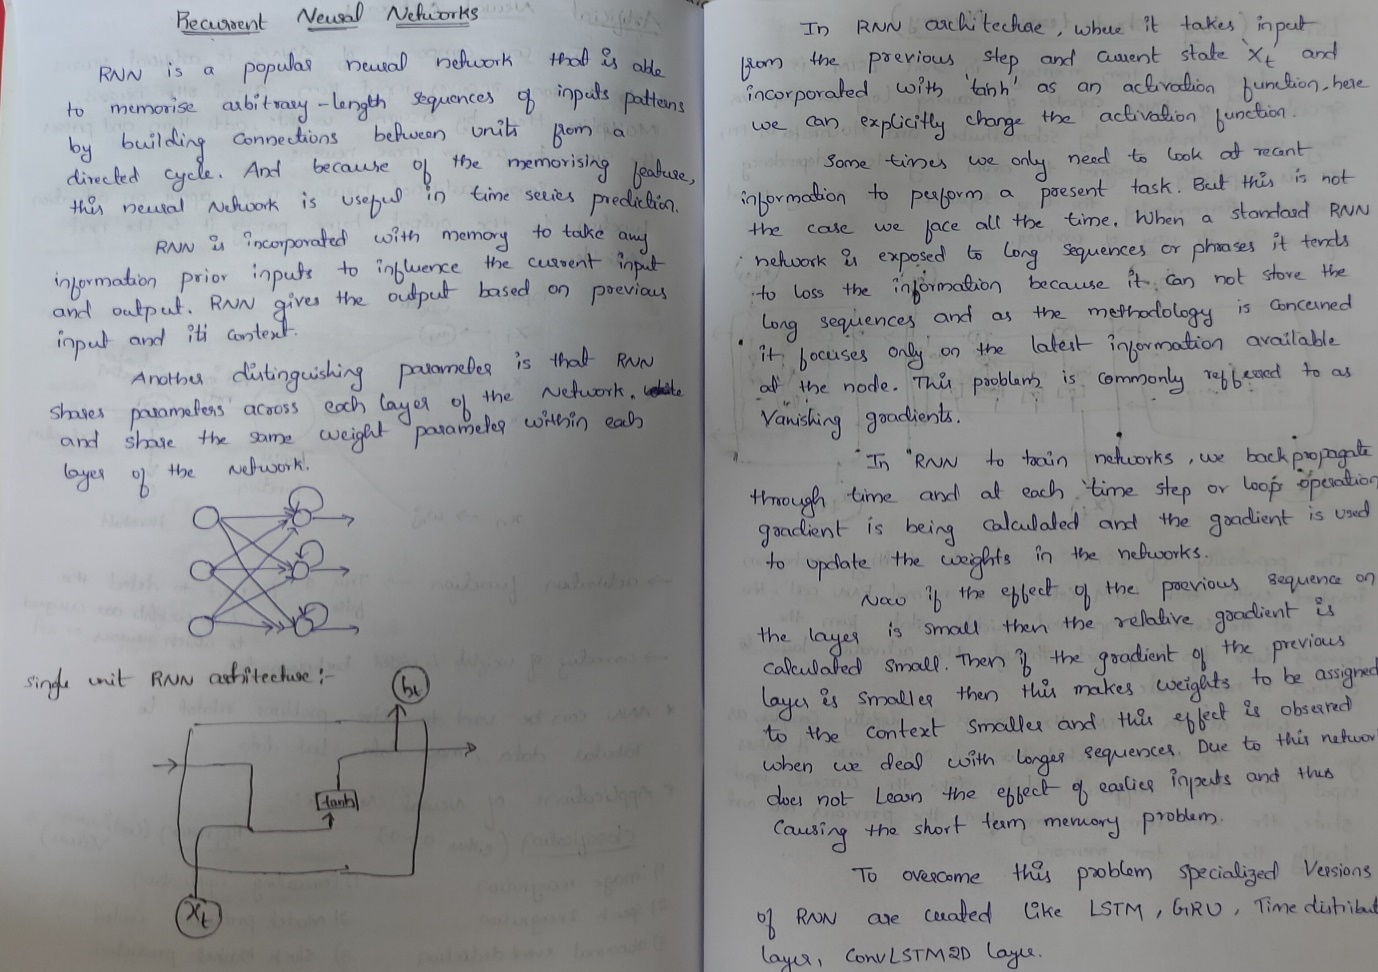 Recurrent Neural Networks
RNN is a popular neural network that is able
to memorise arbitrary-length sequences of inputs patterns
by building connections between units from a
directed cycle. And because of the memorising feature,
this neural Network is useful in time series prediction.
RNN is incorporated with memory to take any
information prior inputs to influence the current input
and output. RNN gives the output based on previous
input and its context.
Another distinguishing parameter is that RNN
shares parameters across each layer of the Network.
and share the same weight parameter within each
layer of the network.
single unit RNN architecture :-
ht
tanh
Xt
In RNN architecture, where it takes input
from the previous step and current state 'Xt and
incorporated with 'tanh' as an activation function, here
we can explicitly change the activation function.
Some times we only need to look at recent
information to perform a present task. But this is not
the case we face all the time. When a standard RNN
network is exposed to long sequences or phrases it tends
to loss the information because it can not store the
long sequences and as the methodology is concerned
it focuses only on the latest information available
at the node. This problem is commonly reffered to as
Vanishing gradients.
In RNN to train networks, we backpropagate
through time and at each time step or loop operation
gradient is being calculated and the gradient is used
to update the weights in the networks.
Now if the effect of the previous sequence on
the layer is small then the relative gradient is
calculated small. Then if the gradient of the previous
layer is smaller then this makes weights to be assigned
to the context smaller and this effect is observed
when we deal with longer sequences. Due to this networ
does not Learn the effect of earlier inputs and thus
causing the short term memory problem.
To overcome this problem specialized Versions
of RNN are created like LSTM, GRU, Time distribut
layer, ConvLSTM2D layer.